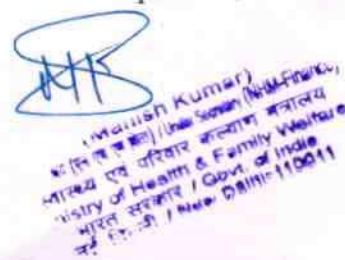 (Manish Kumar)
/ Under Secretary (NHM-Finance)
स्वास्थ्य एवं परिवार कल्याण मंत्रालय
nistry of Health & Family Welfare
भारत सरकार / Govt. of India
नई दिल्ली / New Delhi-110011